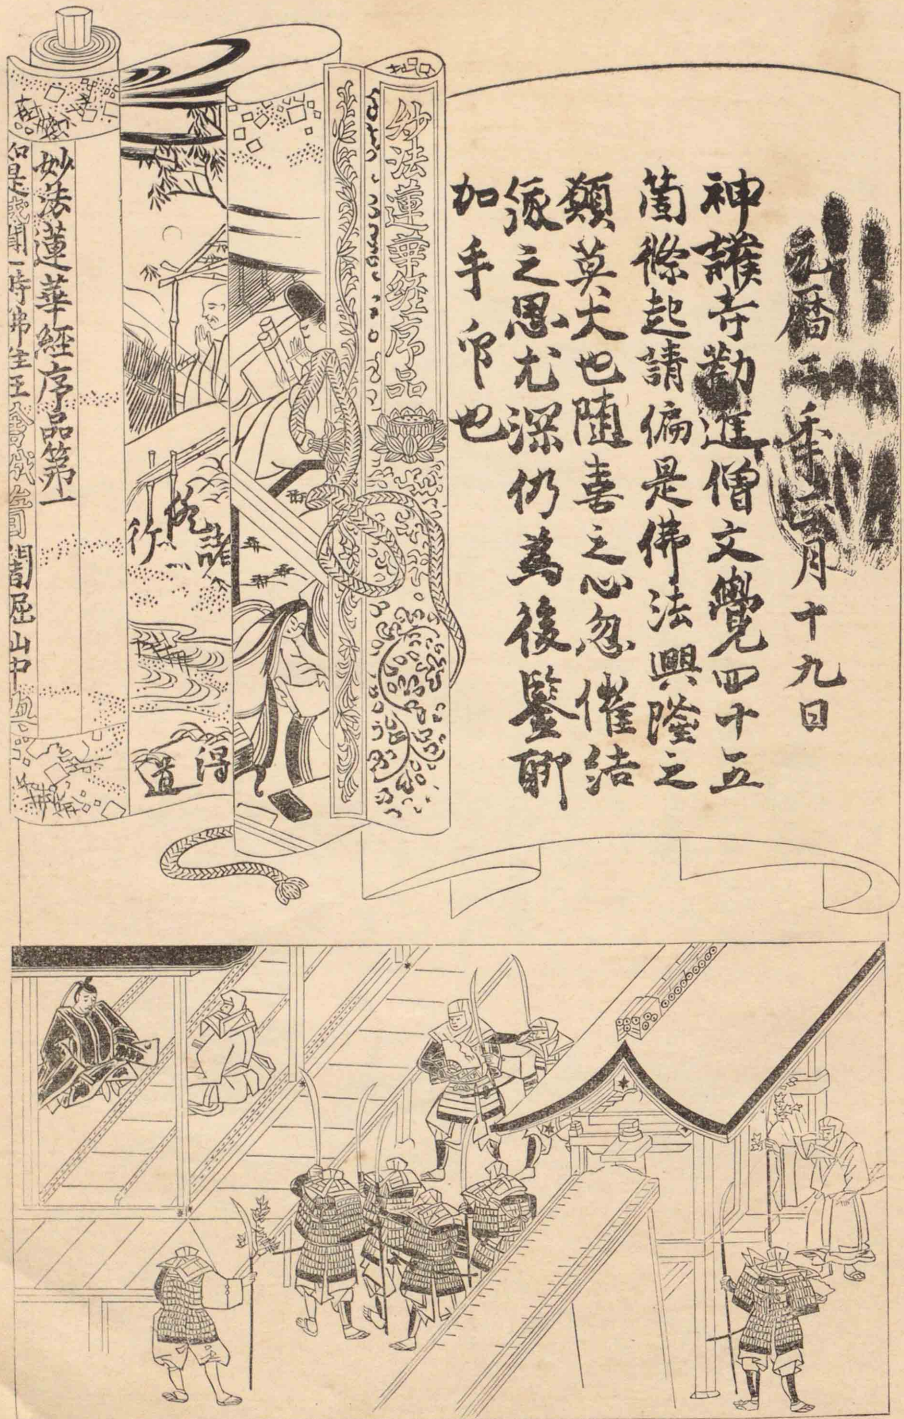 元暦二年正月十九日
神護寺勧進僧文覺四十五
箇條起請偏是佛法興隆之
願莫大也随喜之心忽催結
縁之思尤深仍為後鑒聊
加手印也
妙法蓮華経序品
諸
行
得
道
妙法蓮華經序品第一
如是我聞一時佛住王舍城耆闍崛山中與